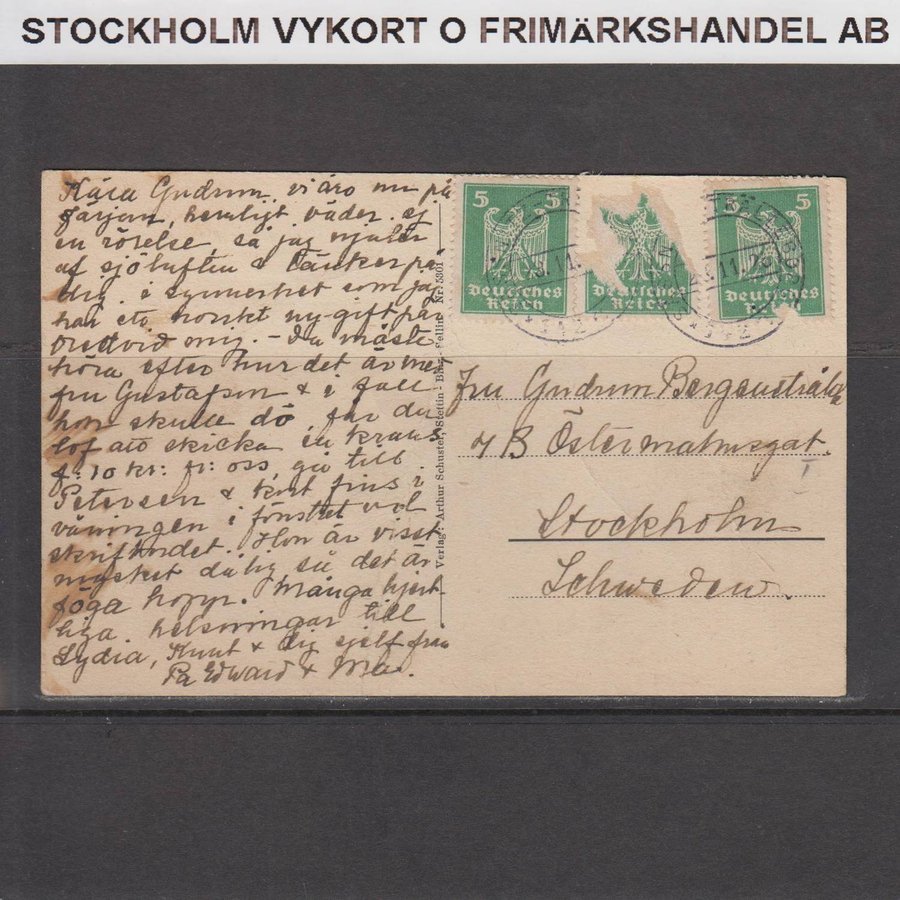 STOCKHOLM VYKORT O FRIMÄRKSHANDEL AB
Kära Gudrun, vi äro nu på
färjan, herrligt väder, ej
en rörelse, så jag njuter
af sjöluften & tänker på
dig, i synnerhet som jag
har ett norskt ny-gift par
bredvid mig. - Du måste
höra efter hur det är med
fru Gustafson & i fall
hon skulle dö får du
lof att skicka en krans
f: 10 kr: fr: oss, gå till
Petersen & kort fins i
våningen i fönstret vid
skrifbordet. Hon är visst
mycket dålig så det är
föga hopp. Många hjert-
liga helsningar till
Lydia, Knut & dig sjelf från
Pa Edward & Ma.
Verlag: Arthur Schuster, Stettin - Binz - Sellin Nr. 5301
5 5
Deutsches
Reich
Deutsches
Reich
5
Deutsches
11. 26
Fru Gudrun Bergenstråhle
7B Östermalmsgat.
I
Stockholm
Schweden.